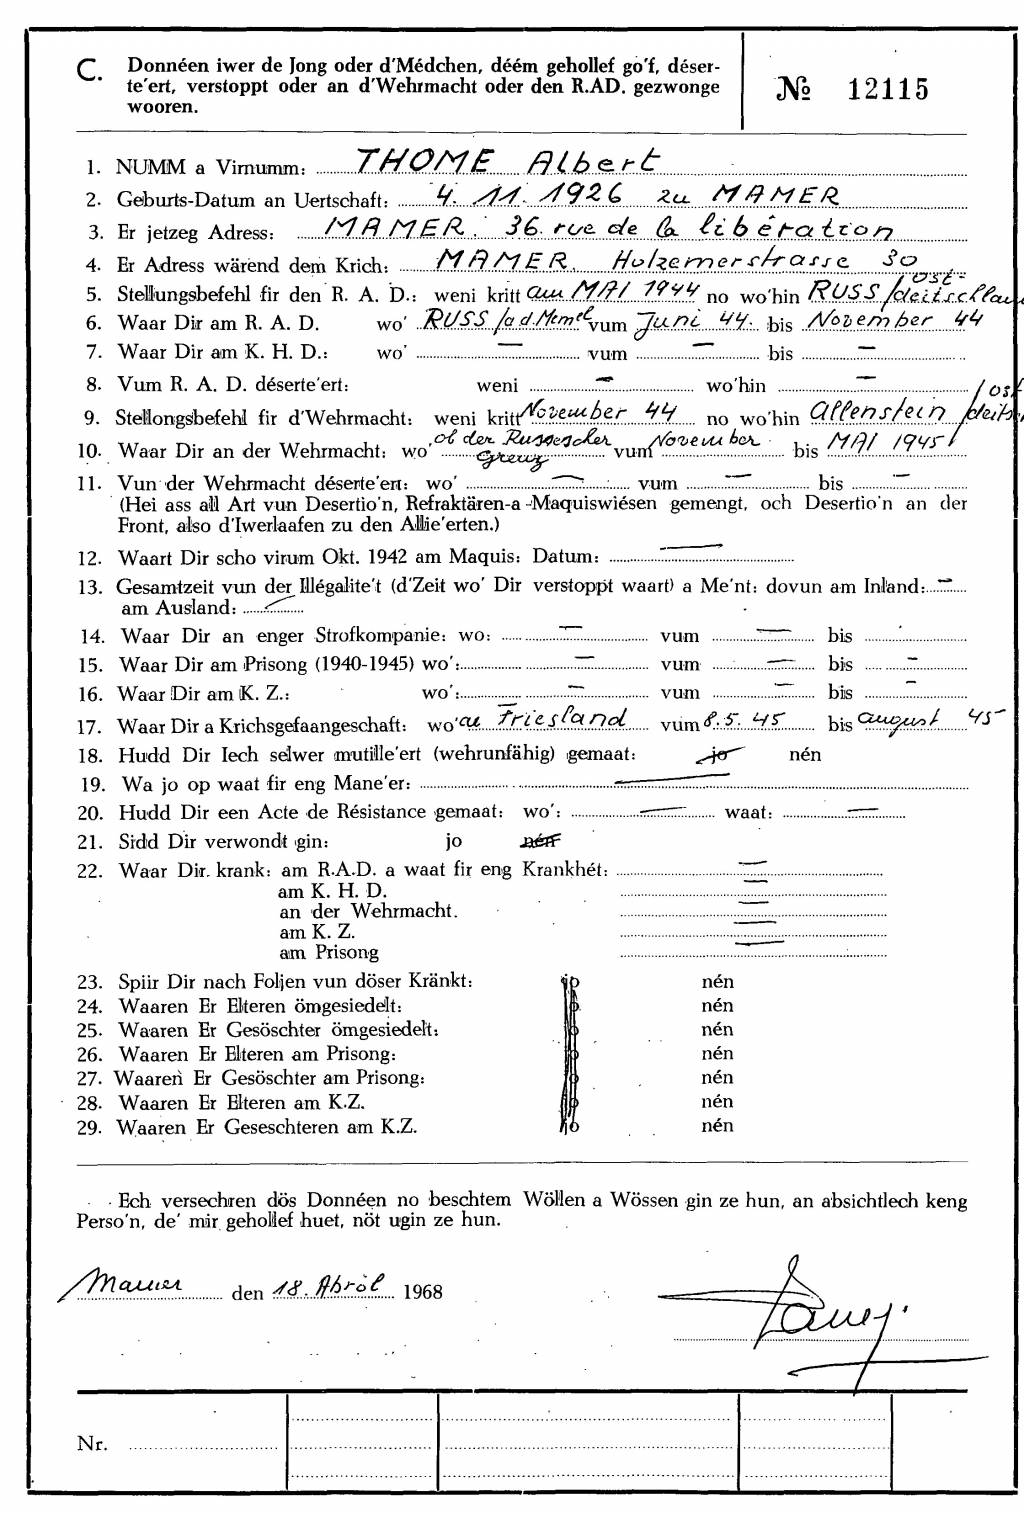 C. Donnéen iwer de Jong oder d'Médchen, déém gehollef go'f, déser-
te'ert, verstoppt oder an d'Wehrmacht oder den R.AD. gezwonge
wooren.
№ 12115
1. NUMM a Virnumm: THOME Albert
2. Geburts-Datum an Uertschaft: 4. 11. 1926 zu MAMER
3. Er jetzeg Adress: MAMER. 36. rue de la libération
4. Er Adress wärend dem Krich: MAMER. Holzemerstrasse 30
5. Stellungsbefehl fir den R. A. D.: weni kritt am MAI 1944 no wo'hin RUSS / ost-
deitschlau
6. Waar Dir am R. A. D. wo' RUSS /a d. Memel vum Juni 44. bis November 44
7. Waar Dir am K. H. D.: wo' — vum — bis —
8. Vum R. A. D. déserte'ert: weni — wo'hin —
9. Stellongsbefehl fir d'Wehrmacht: weni kritt November 44 no wo'hin Allenstein / ost
deits
10. Waar Dir an der Wehrmacht: wo' ob der Russescher vum November bis MAI 1945
Grenz
11. Vun der Wehrmacht déserte'ert: wo' — vum — bis —
(Hei ass all Art vun Desertio'n, Refraktären-a -Maquiswiésen gemengt, och Desertio'n an der
Front, also d'Iwerlaafen zu den Allie'erten.)
12. Waart Dir scho virum Okt. 1942 am Maquis: Datum: —
13. Gesamtzeit vun der Illégalite't (d'Zeit wo' Dir verstoppt waart) a Me'nt: dovun am Inland: —
am Ausland: —
14. Waar Dir an enger Strofkompanie: wo: — vum — bis
15. Waar Dir am Prisong (1940-1945) wo': — vum — bis —
16. Waar Dir am K. Z.: wo': — vum — bis —
17. Waar Dir a Krichsgefaangeschaft: wo' au Friesland vum 8. 5. 45 bis august 45
18. Hudd Dir Iech selwer mutille'ert (wehrunfähig) gemaat: jo nén
19. Wa jo op waat fir eng Mane'er: —
20. Hudd Dir een Acte de Résistance gemaat: wo': — waat: —
21. Sidd Dir verwondt gin: jo nén
22. Waar Dir krank: am R.A.D. a waat fir eng Krankhét: —
am K. H. D. —
an der Wehrmacht. —
am K. Z. —
am Prisong —
23. Spiir Dir nach Foljen vun döser Kränkt: jo nén
24. Waaren Er Elteren ömgesiedelt: jo nén
25. Waaren Er Gesöschter ömgesiedelt: jo nén
26. Waaren Er Elteren am Prisong: jo nén
27. Waaren Er Gesöschter am Prisong: jo nén
28. Waaren Er Elteren am K.Z. jo nén
29. Waaren Er Geseschteren am K.Z. jo nén
Ech versechren dös Donnéen no beschtem Wöllen a Wössen gin ze hun, an absichtlech keng
Perso'n, de' mir gehollef huet, nöt ugin ze hun.
Mamer den 18. Abröl 1968
Nr.